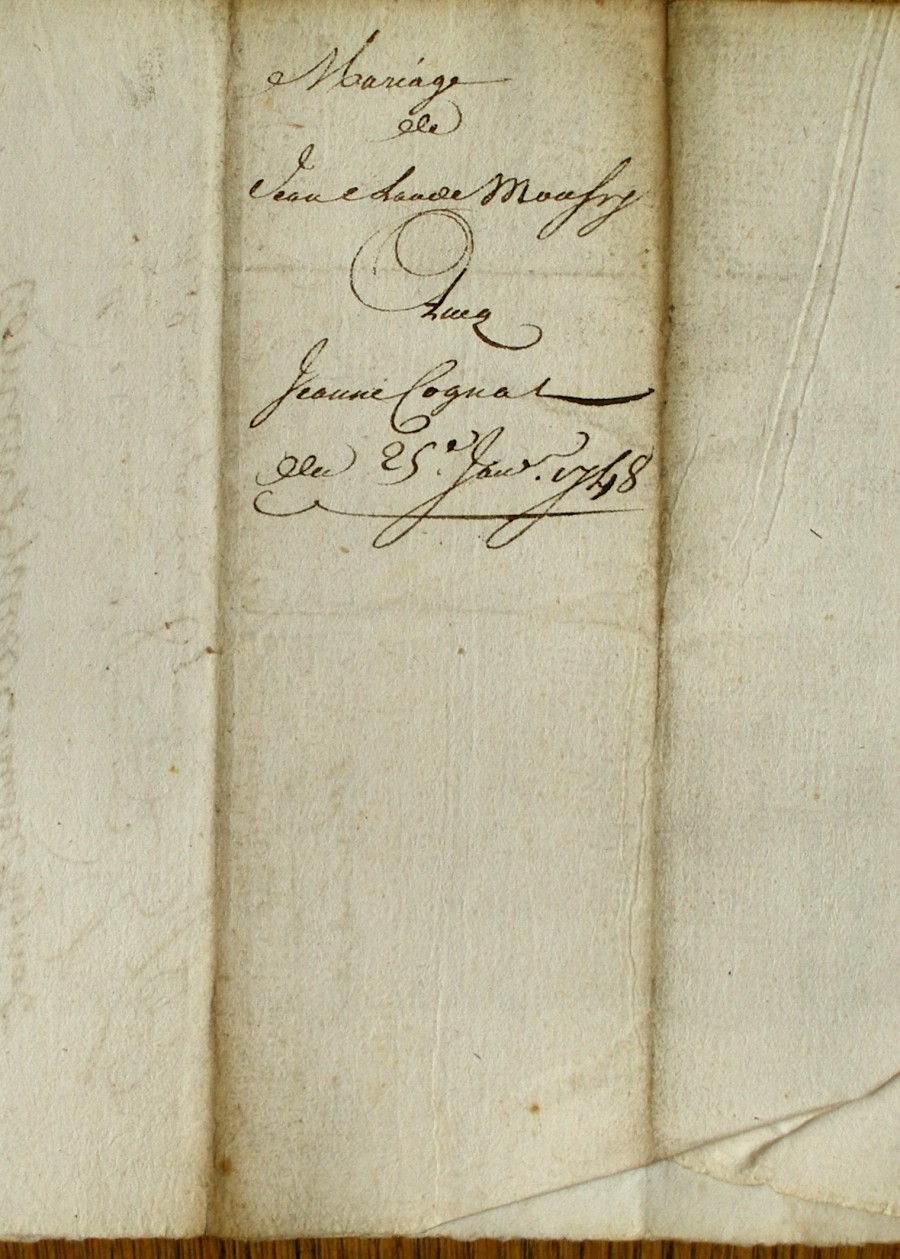 Mariage
de
Jean Claude
Avec
Jeanne Cognat
du 25.e Janv.r 1748